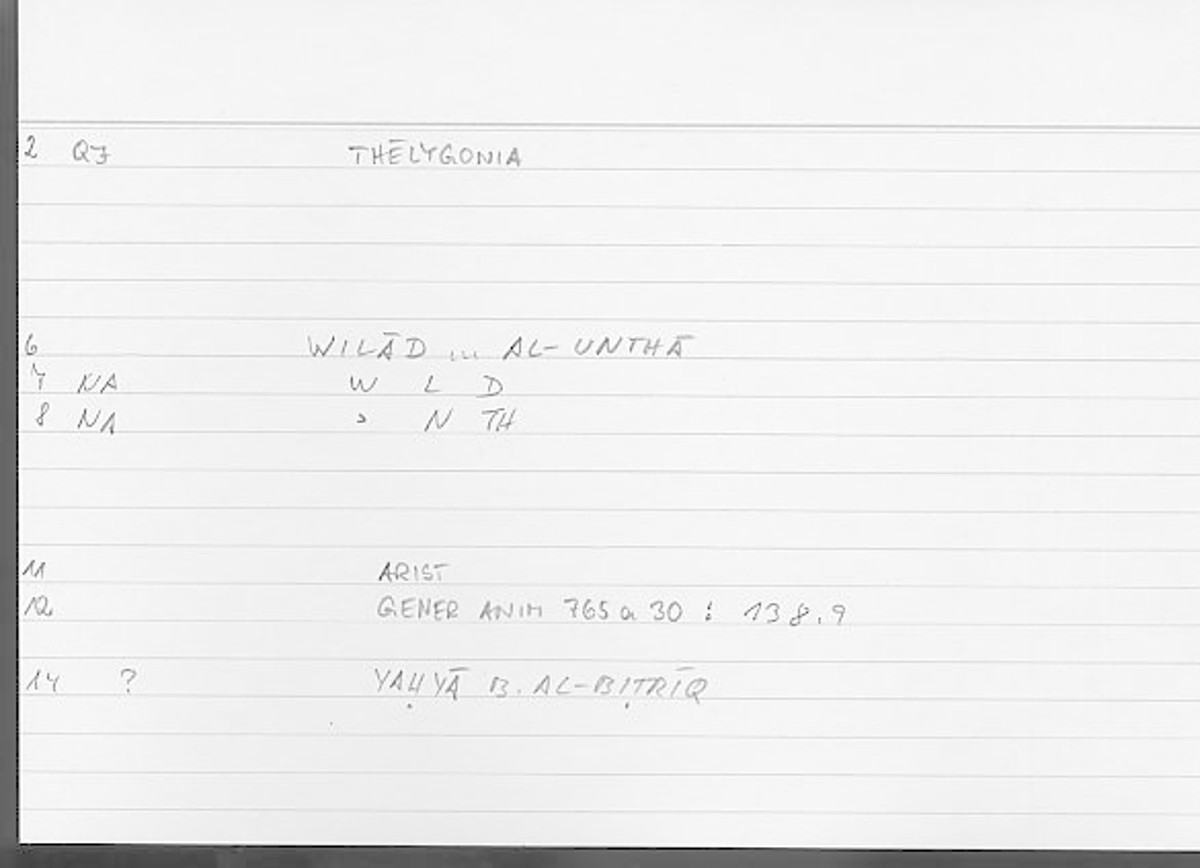 2 QF THĒLYGONIA
6 WILĀD ... AL-UNTHĀ
7 NA W L D
8 NA ʾ N TH
11 ARIST
12 GENER ANIM 765 a 30 : 138.9
14 ? YAḤYĀ B. AL-BIṬRĪQ